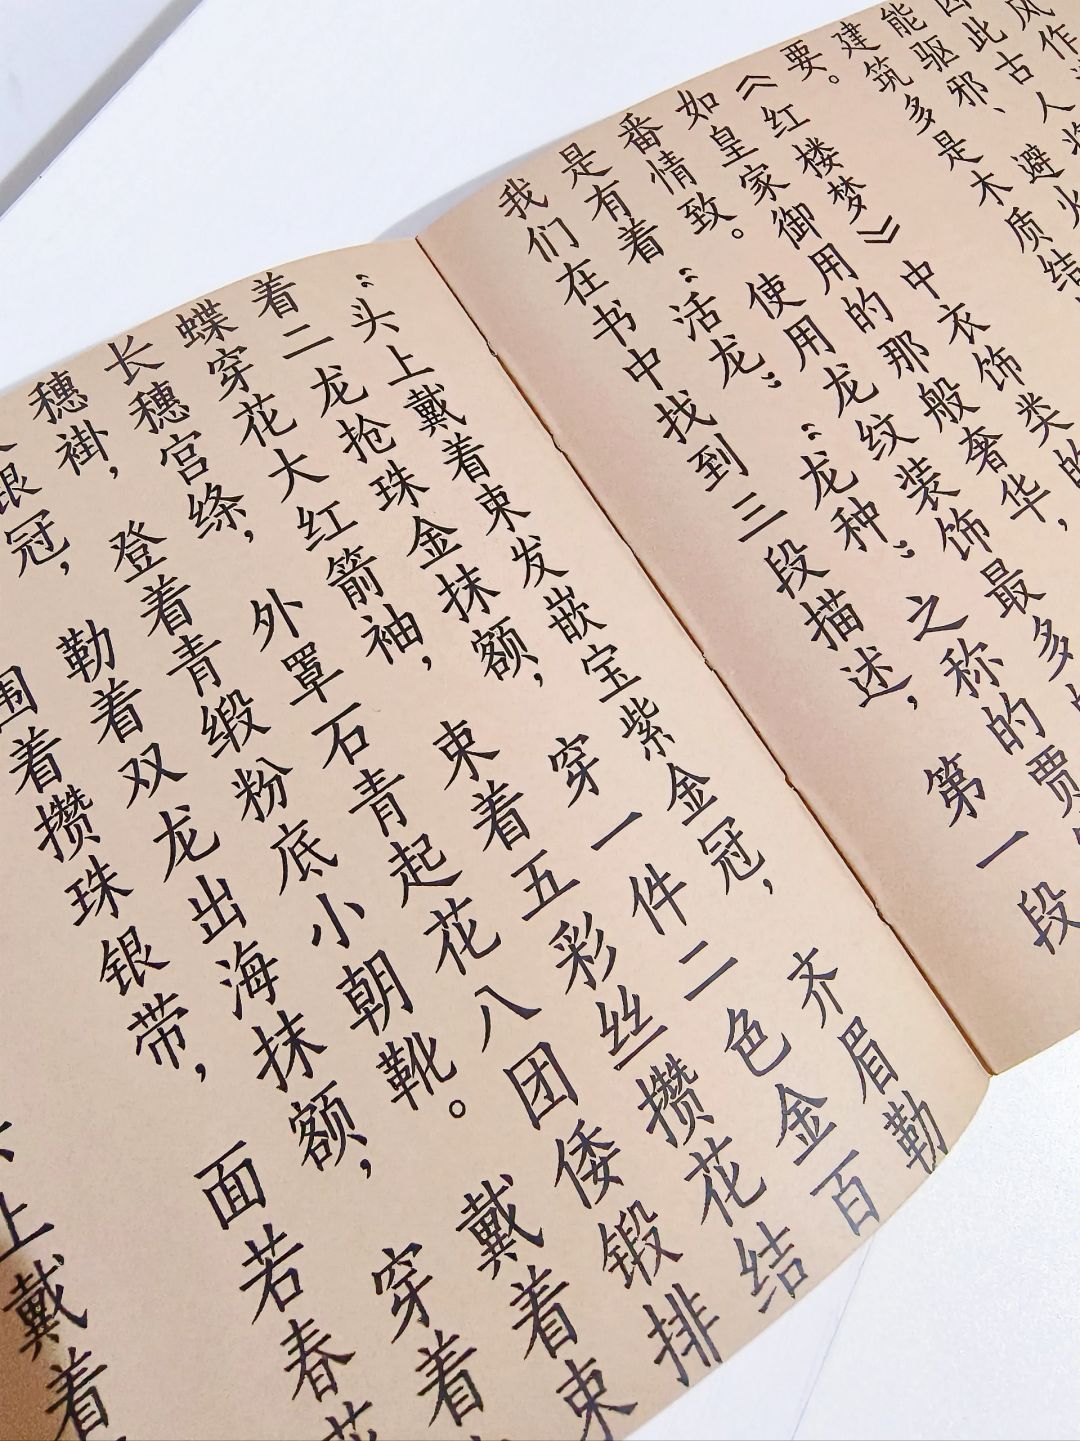 风作
此古人
能驱邪、避火
建筑多是木质结
要。
《红楼梦》中衣饰类的
如皇家御用的那般奢华，
番情致。使用龙纹装饰最多的
是有着“活龙”“龙种”之称的贾
我们在书中找到三段描述，第一段
“头上戴着束发嵌宝紫金冠，齐眉勒
着二龙抢珠金抹额，穿一件二色金百
蝶穿花大红箭袖，束着五彩丝攒花结
长穗宫绦，外罩石青起花八团倭锻排
穗褂，登着青缎粉底小朝靴。戴着束
银冠，勒着双龙出海抹额，穿着
围着攒珠银带，面若春花
上戴着